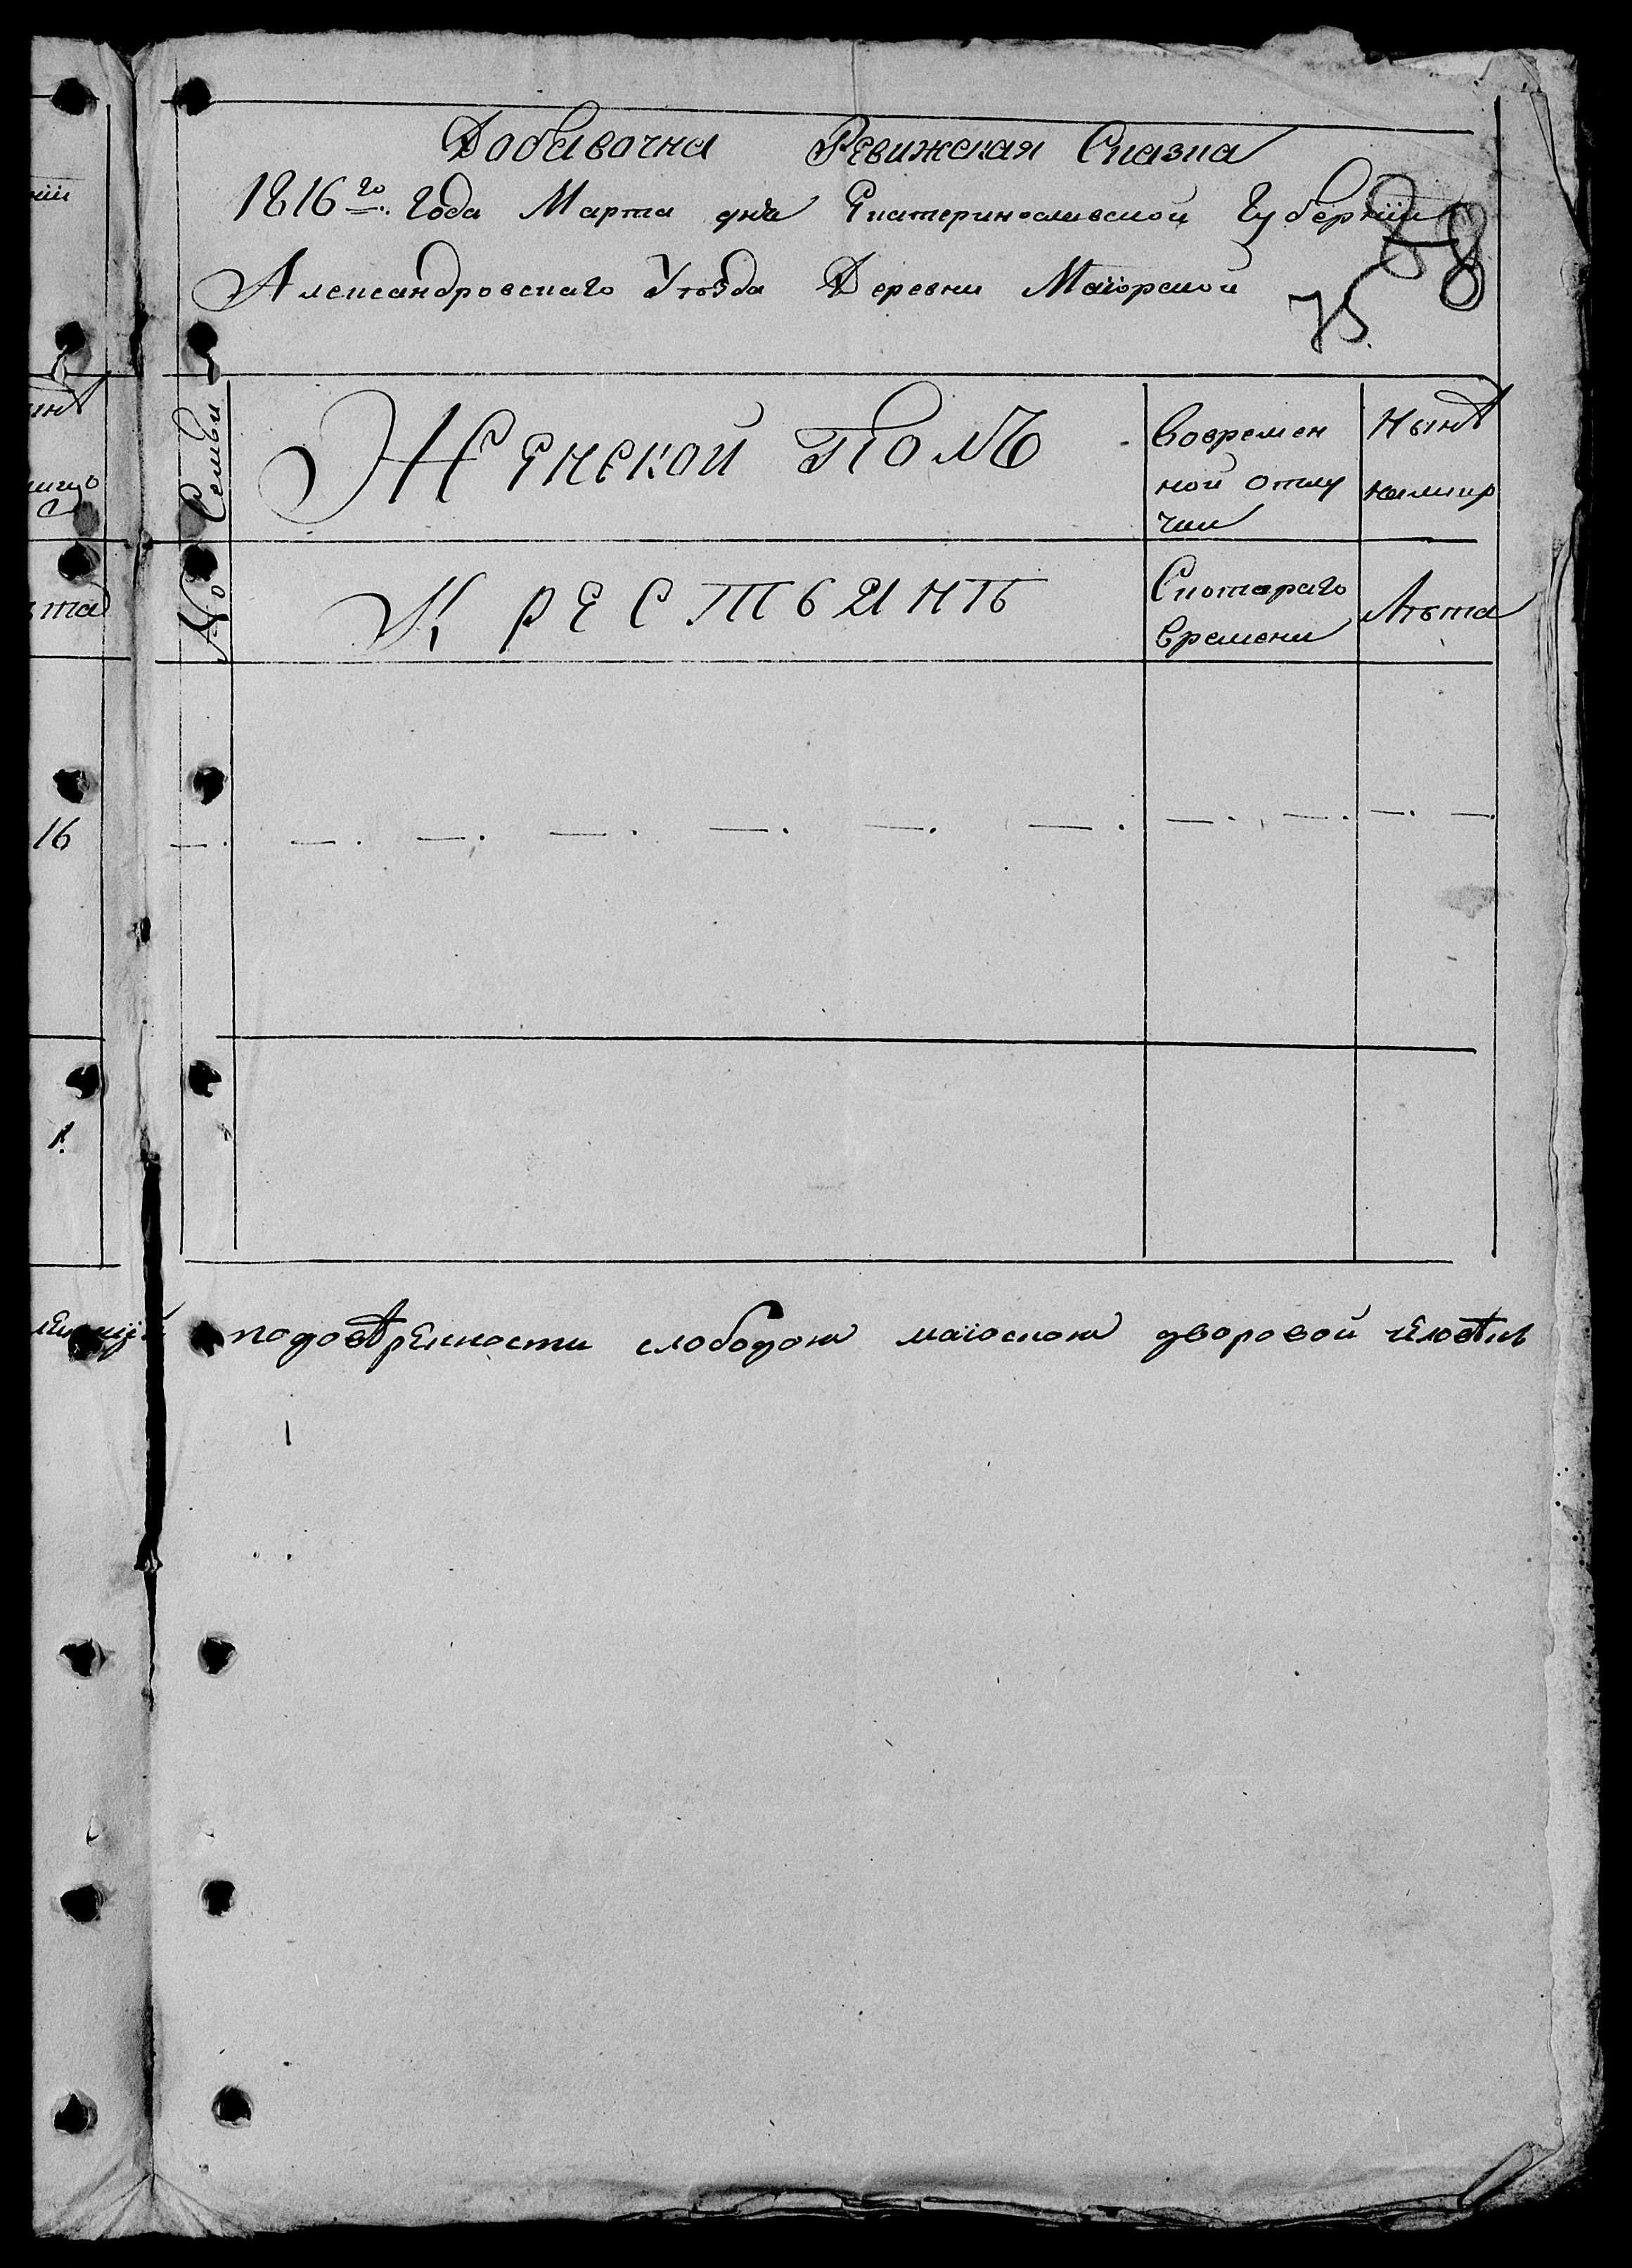 Добавочна Ревижская Сказка
1816го года Марта дня Екатеринославской Губернїи
Александровскаго Уѣзда Деревни Маїорской
38
75
№ Семьи
Женской Полъ
Вовремен
ной отлу
чки
Ныне
налицо
Крестьянъ
Скотораго
Времени
Лѣта
16
1.
подовѣренности слободою маїоскою дворовой человѣкъ